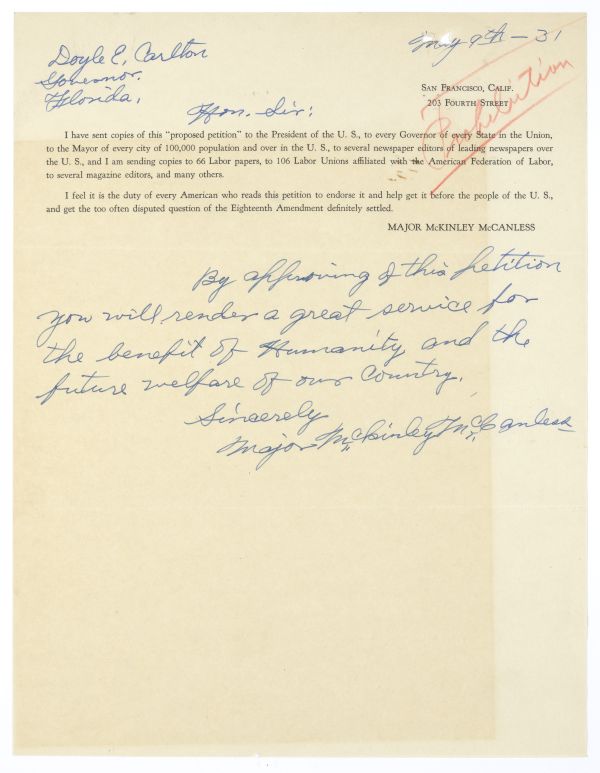 May 9th – 31
Doyle E. Carlton
Governor.
Florida.
San Francisco, Calif.
203 Fourth Street
Prohibition
Hon. Sir:
I have sent copies of this "proposed petition" to the President of the U. S., to every Governor of every State in the Union,
to the Mayor of every city of 100,000 population and over in the U. S., to several newspaper editors of leading newspapers over
the U. S., and I am sending copies to 66 Labor papers, to 106 Labor Unions affiliated with the American Federation of Labor,
to several magazine editors, and many others.
I feel it is the duty of every American who reads this petition to endorse it and help get it before the people of the U. S.,
and get the too often disputed question of the Eighteenth Amendment definitely settled.
MAJOR McKINLEY McCANLESS
By approving of this petition
you will render a great service for
the benefit of Humanity and the
future welfare of our Country.
Sincerely
Major McKinley McCanless